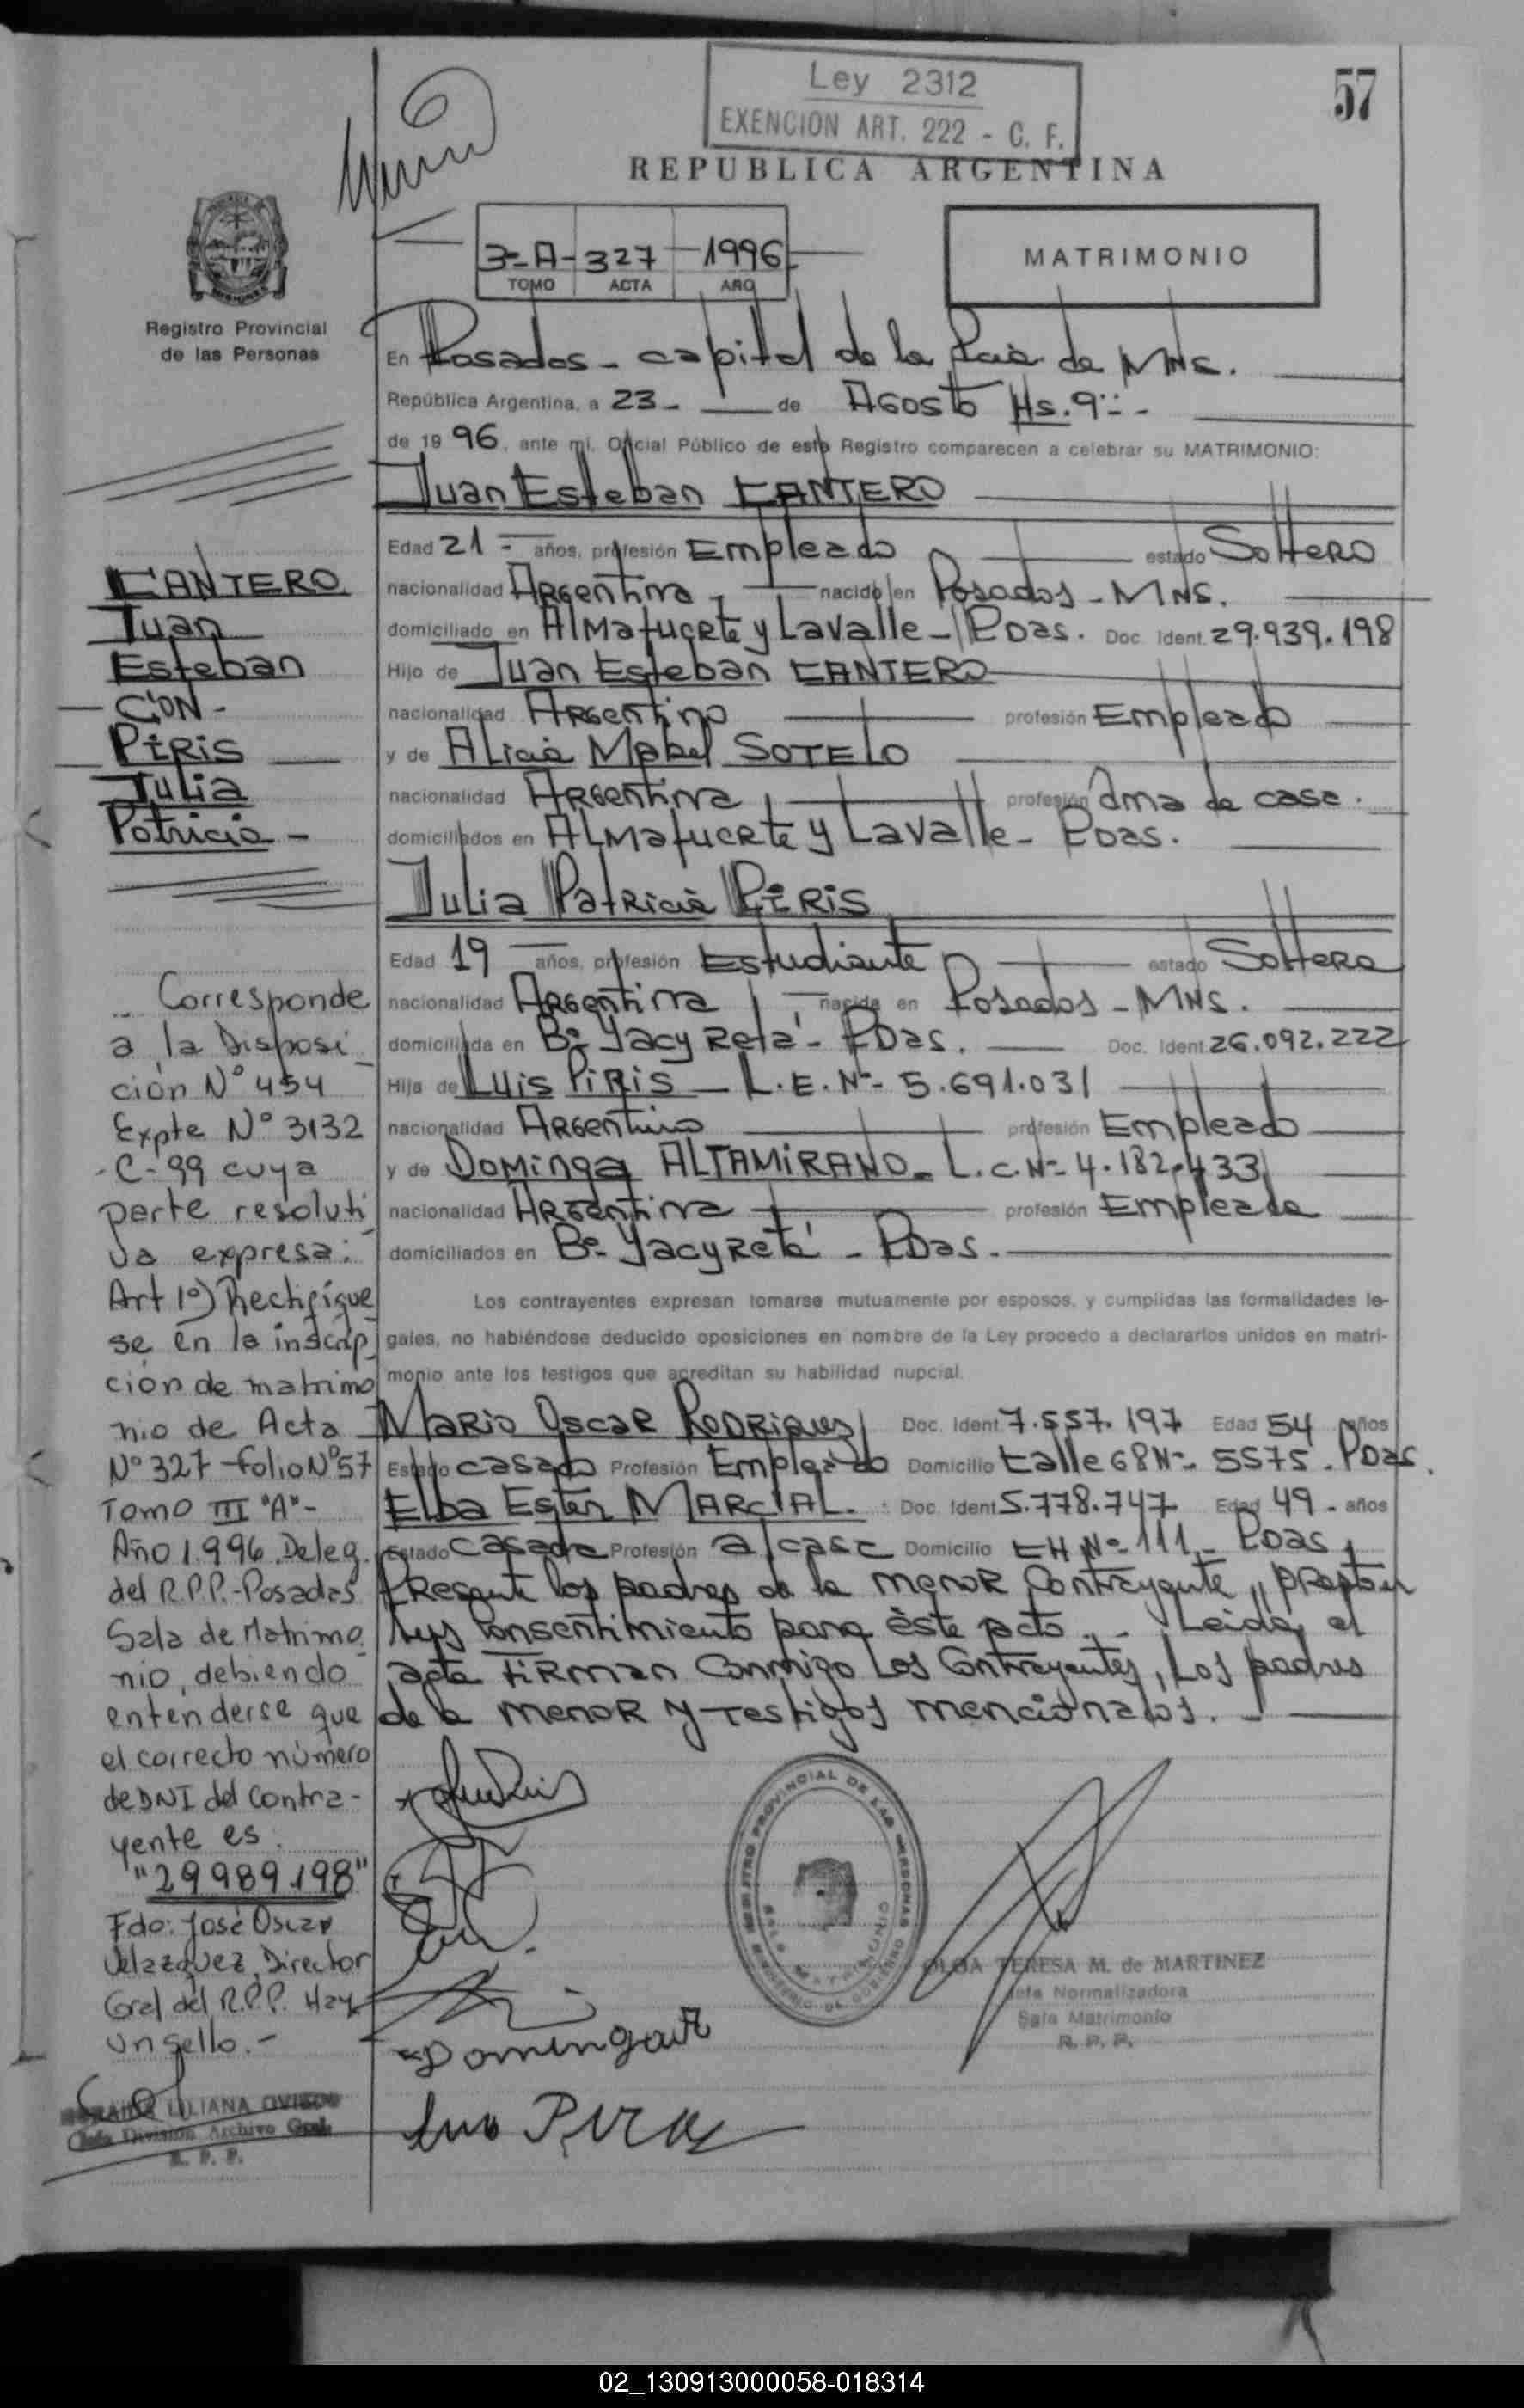 57
Ley 2312
EXENCION ART. 222 - C. F.
REPUBLICA ARGENTINA
3º-A- 327 1996
TOMO ACTA AÑO
MATRIMONIO
Registro Provincial
de las Personas
En Posadas - capital de la Pcia de MNS.
República Argentina, a 23 - de Agosto Hs. 9
de 1996, ante mí, Oficial Público de este Registro comparecen a celebrar su MATRIMONIO:
Juan Esteban CANTERO
Edad 21 - años, profesión Empleado estado Soltero
nacionalidad Argentina - nacido en Posadas - MNS.
domiciliado en Almafuerte y Lavalle - Pdas. Doc. Ident. 29.939.198
Hijo de Juan Esteban CANTERO
nacionalidad Argentino profesión Empleado
y de Alicia Mabel SOTELO
nacionalidad Argentina profesión Ama de casa.
domiciliados en Almafuerte y Lavalle - Pdas.
Julia Patricia PIRIS
Edad 19 años, profesión Estudiante estado Soltera
nacionalidad Argentina nacida en Posadas - MNS.
domiciliada en Bº Yacyretá - Pdas. Doc. Ident. 26.092.222
Hija de Luis PIRIS - L.E.Nº 5.691.031
nacionalidad Argentino profesión Empleado
y de Dominga ALTAMIRANO - L.C.Nº 4.182.433
nacionalidad Argentina profesión Empleada
domiciliados en Bº Yacyretá - Pdas.
Los contrayentes expresan tomarse mutuamente por esposos, y cumplidas las formalidades le-
gales, no habiéndose deducido oposiciones en nombre de la Ley procedo a declararlos unidos en matri-
monio ante los testigos que acreditan su habilidad nupcial.
Mario Oscar Rodriguez Doc. Ident 7.557.197 Edad 54 años
Estado casado Profesión Empleado Domicilio Calle 68 Nº 5575 - Pdas.
Elba Ester MARCIAL. Doc. Ident 5.778.747 Edad 49 - años
Estado casada Profesión a/casa Domicilio CH Nº 111 - Pdas.
Presente los padres de la menor contrayente, prestan
sus consentimiento para éste acto.- Leida, el
acta firman conmigo los contrayentes, los padres
de la menor y testigos mencionados.-
CANTERO
Juan
Esteban
- CON -
PIRIS
Julia
Patricia -
Corresponde
a la Disposi
ción Nº 454
Expte Nº 3132
- C - 99 cuya
parte resoluti
va expresa:
Art 1º) Rectifíque
se en la inscrip
ción de matrimo
nio de Acta
Nº 327 - folio Nº 57
Tomo III "A" -
Año 1.996. Deleg.
del R.P.P. - Posadas
Sala de Matrimo
nio, debiendo
entenderse que
el correcto número
de DNI del Contra-
yente es:
"29989198"
Fdo: José Oscar
Velazquez, Director
Gral del R.P.P. Hay
un sello. -
LILIANA OVIEDO
Jefa División Archivo Gral.
R. P. P.
REGISTRO PROVINCIAL DE LAS PERSONAS
SALA MATRIMONIO
MINISTERIO DE GOBIERNO
OLGA TERESA M. de MARTINEZ
Jefa Normalizadora
Sala Matrimonio
R. P. P.
Dominga
Luis Piris
02_130913000058-018314